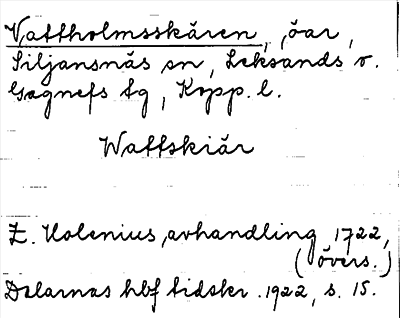 Vattholmsskären, öar,
Siljansnäs sn, Leksands o.
Gagnefs tg, Kopp. l.
Wattskiär
Z. Holenius, avhandling 1722,
(övers.)
Dalarnas hbf tidskr. 1922, s. 15.